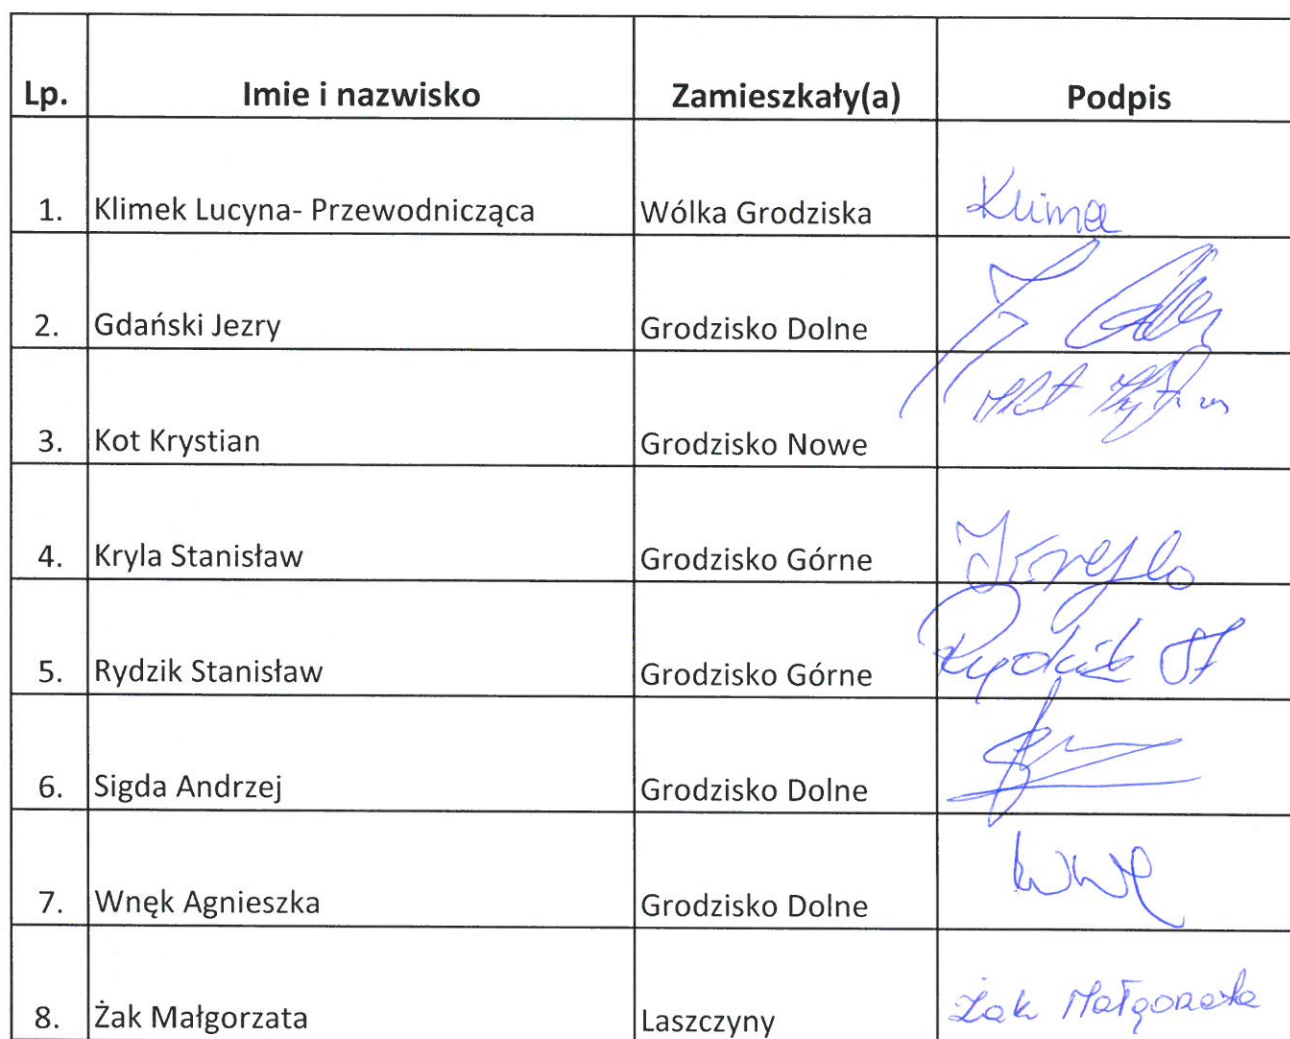 Lp. Imie i nazwisko Zamieszkały(a) Podpis
1. Klimek Lucyna- Przewodnicząca Wólka Grodziska Klima
2. Gdański Jezry Grodzisko Dolne
3. Kot Krystian Grodzisko Nowe
4. Kryla Stanisław Grodzisko Górne
5. Rydzik Stanisław Grodzisko Górne Rydzik St
6. Sigda Andrzej Grodzisko Dolne
7. Wnęk Agnieszka Grodzisko Dolne
8. Żak Małgorzata Laszczyny Żak Małgorzata